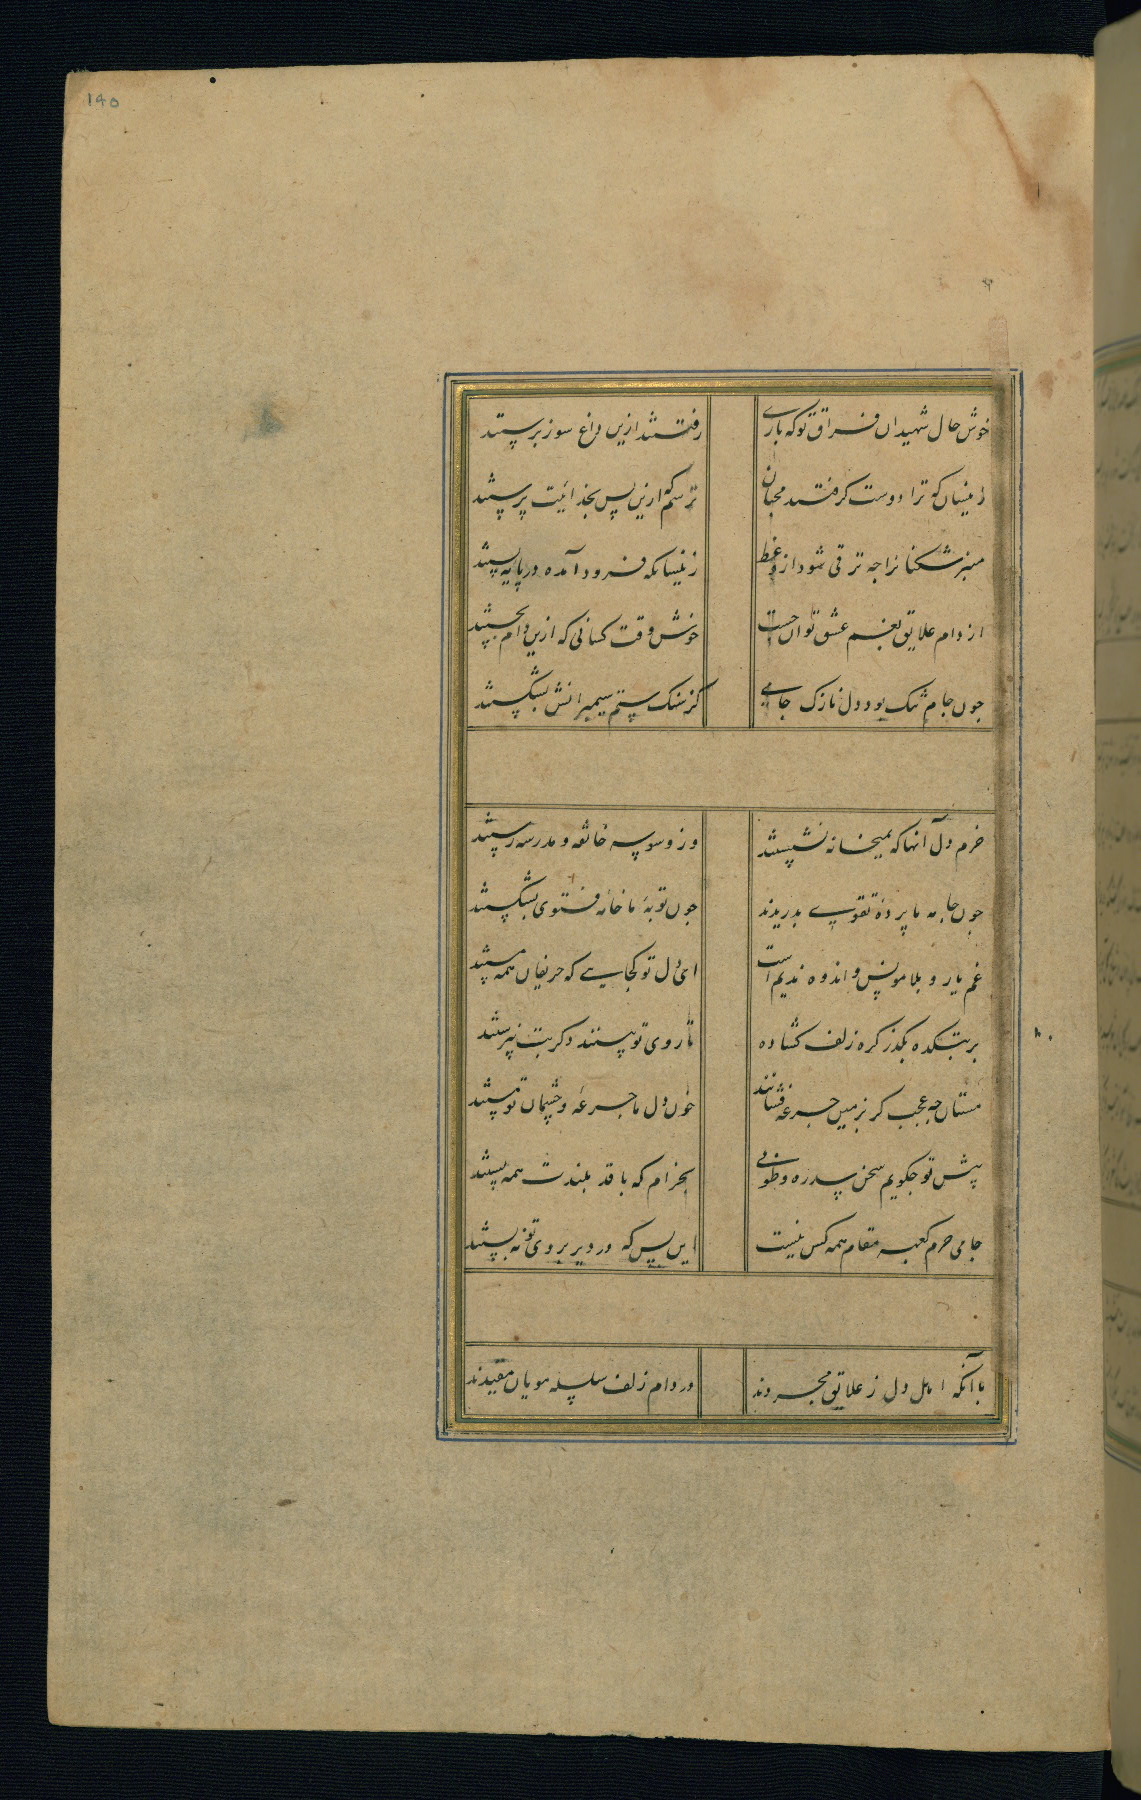 ۱۹۵
خوش حال شهیدان فراق تو که باری رفتند ازین داغ سوز برستند
زینسان که ترا دوست گرفتند محبان ترسم که ازین پس بخدائیت پرستند
منبر شکنانرا چه ترقی شود از وعظ زینسانکه فرود آمده در پایه پستند
از دام علایق بغم عشق توان جست خوش وقت کسانی که ازین دام بجستند
چون جام تنک بود دل نازک جامی کز سنک ستم سیمبرانش بشکستند
خرم دل آنها که بمیخانه نشستند وز وسوسه خانقه و مدرسه رستند
چون جامه ما پرده تقوی بدریدند چون توبه ما خانه فتوی بشکستند
غم یار و بلا مونس و اندوه ندیم است ای دل تو کجایی که حریفان همه مستند
بر بتکده بکذر کره زلف کشاده تا روی تو بینند دکر بت نپرستند
مستان چه عجب کر بزمین جرعه فشانند خون دل ما جرعه و چشمان تو مستند
پیش تو چکویم سخن سدره و طوبی بخرام که با قد بلندت همه پستند
جامی حرم کعبه مقام همه کس نیست این بس که در دیر بروی تو نبستند
با آنکه اهل دل ز علایق مجردند در دام زلف سلسله مویان مقیدند